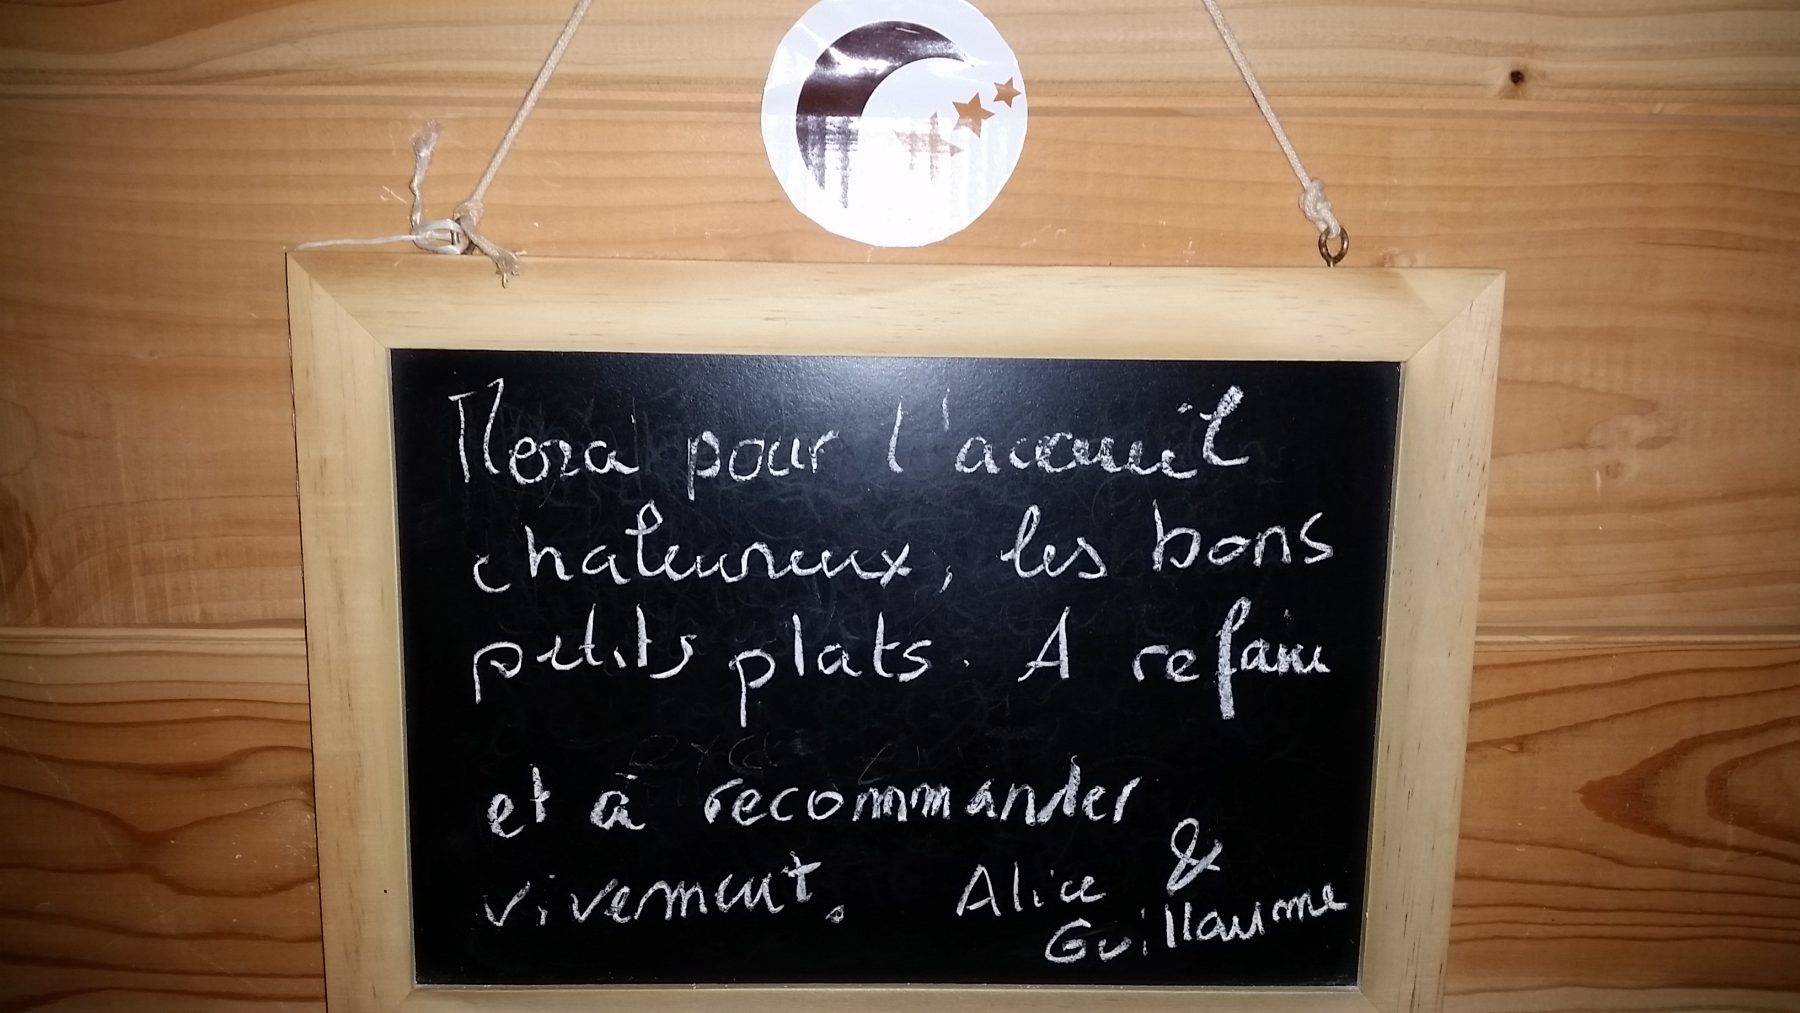 Merci pour l'accueil
chaleureux, les bons
petits plats. A refaire
et à recommander
vivement. Alice &
Guillaume